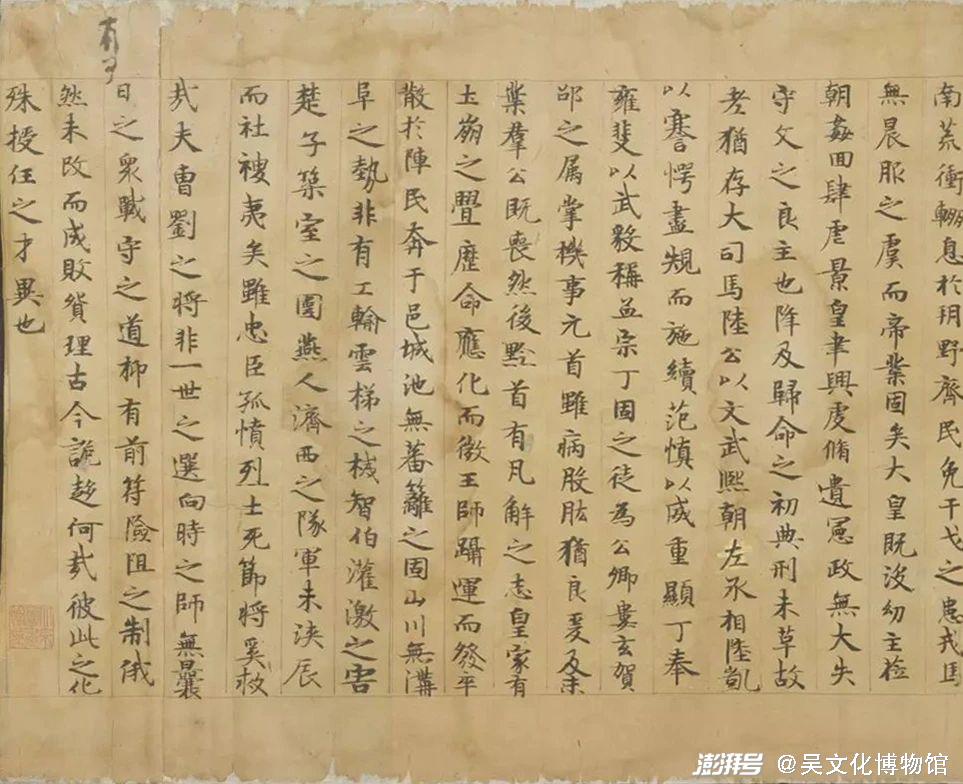 南荒衝輣息於玥野齊民免干戈之患戎馬
無晨服之虞而帝業固矣大皇既沒幼主莅
朝姦回肆虐景皇聿興虔脩遺憲政無大失
守文之良主也降及歸命之初典刑未革故
老猶存大司馬陸公以文武熙朝左丞相陸凱
以謇愕盡規而施續范慎以威重顯丁奉
雍斐以武毅稱孟宗丁固之徒為公卿婁玄賀
邵之属掌機事元首雖病股肱猶良爰及末
葉羣公既喪然後黔首有瓦解之志皇家有
土崩之舋歷命應化而微王師躡運而發卒
散於陣民奔于邑城池無蕃籬之固山川無溝
阜之勢非有工輸雲梯之械智伯灌激之害
楚子築室之圍燕人濟西之隊軍未浹辰
而社稷夷矣雖忠臣孤憤烈士死節將奚救
哉夫曹劉之將非一世之選向時之師無曩
日之衆戰守之道抑有前符險阻之制俄
然未改而成敗貿理古今詭趍何哉彼此之化
殊授任之才異也
澎湃号 @吴文化博物馆